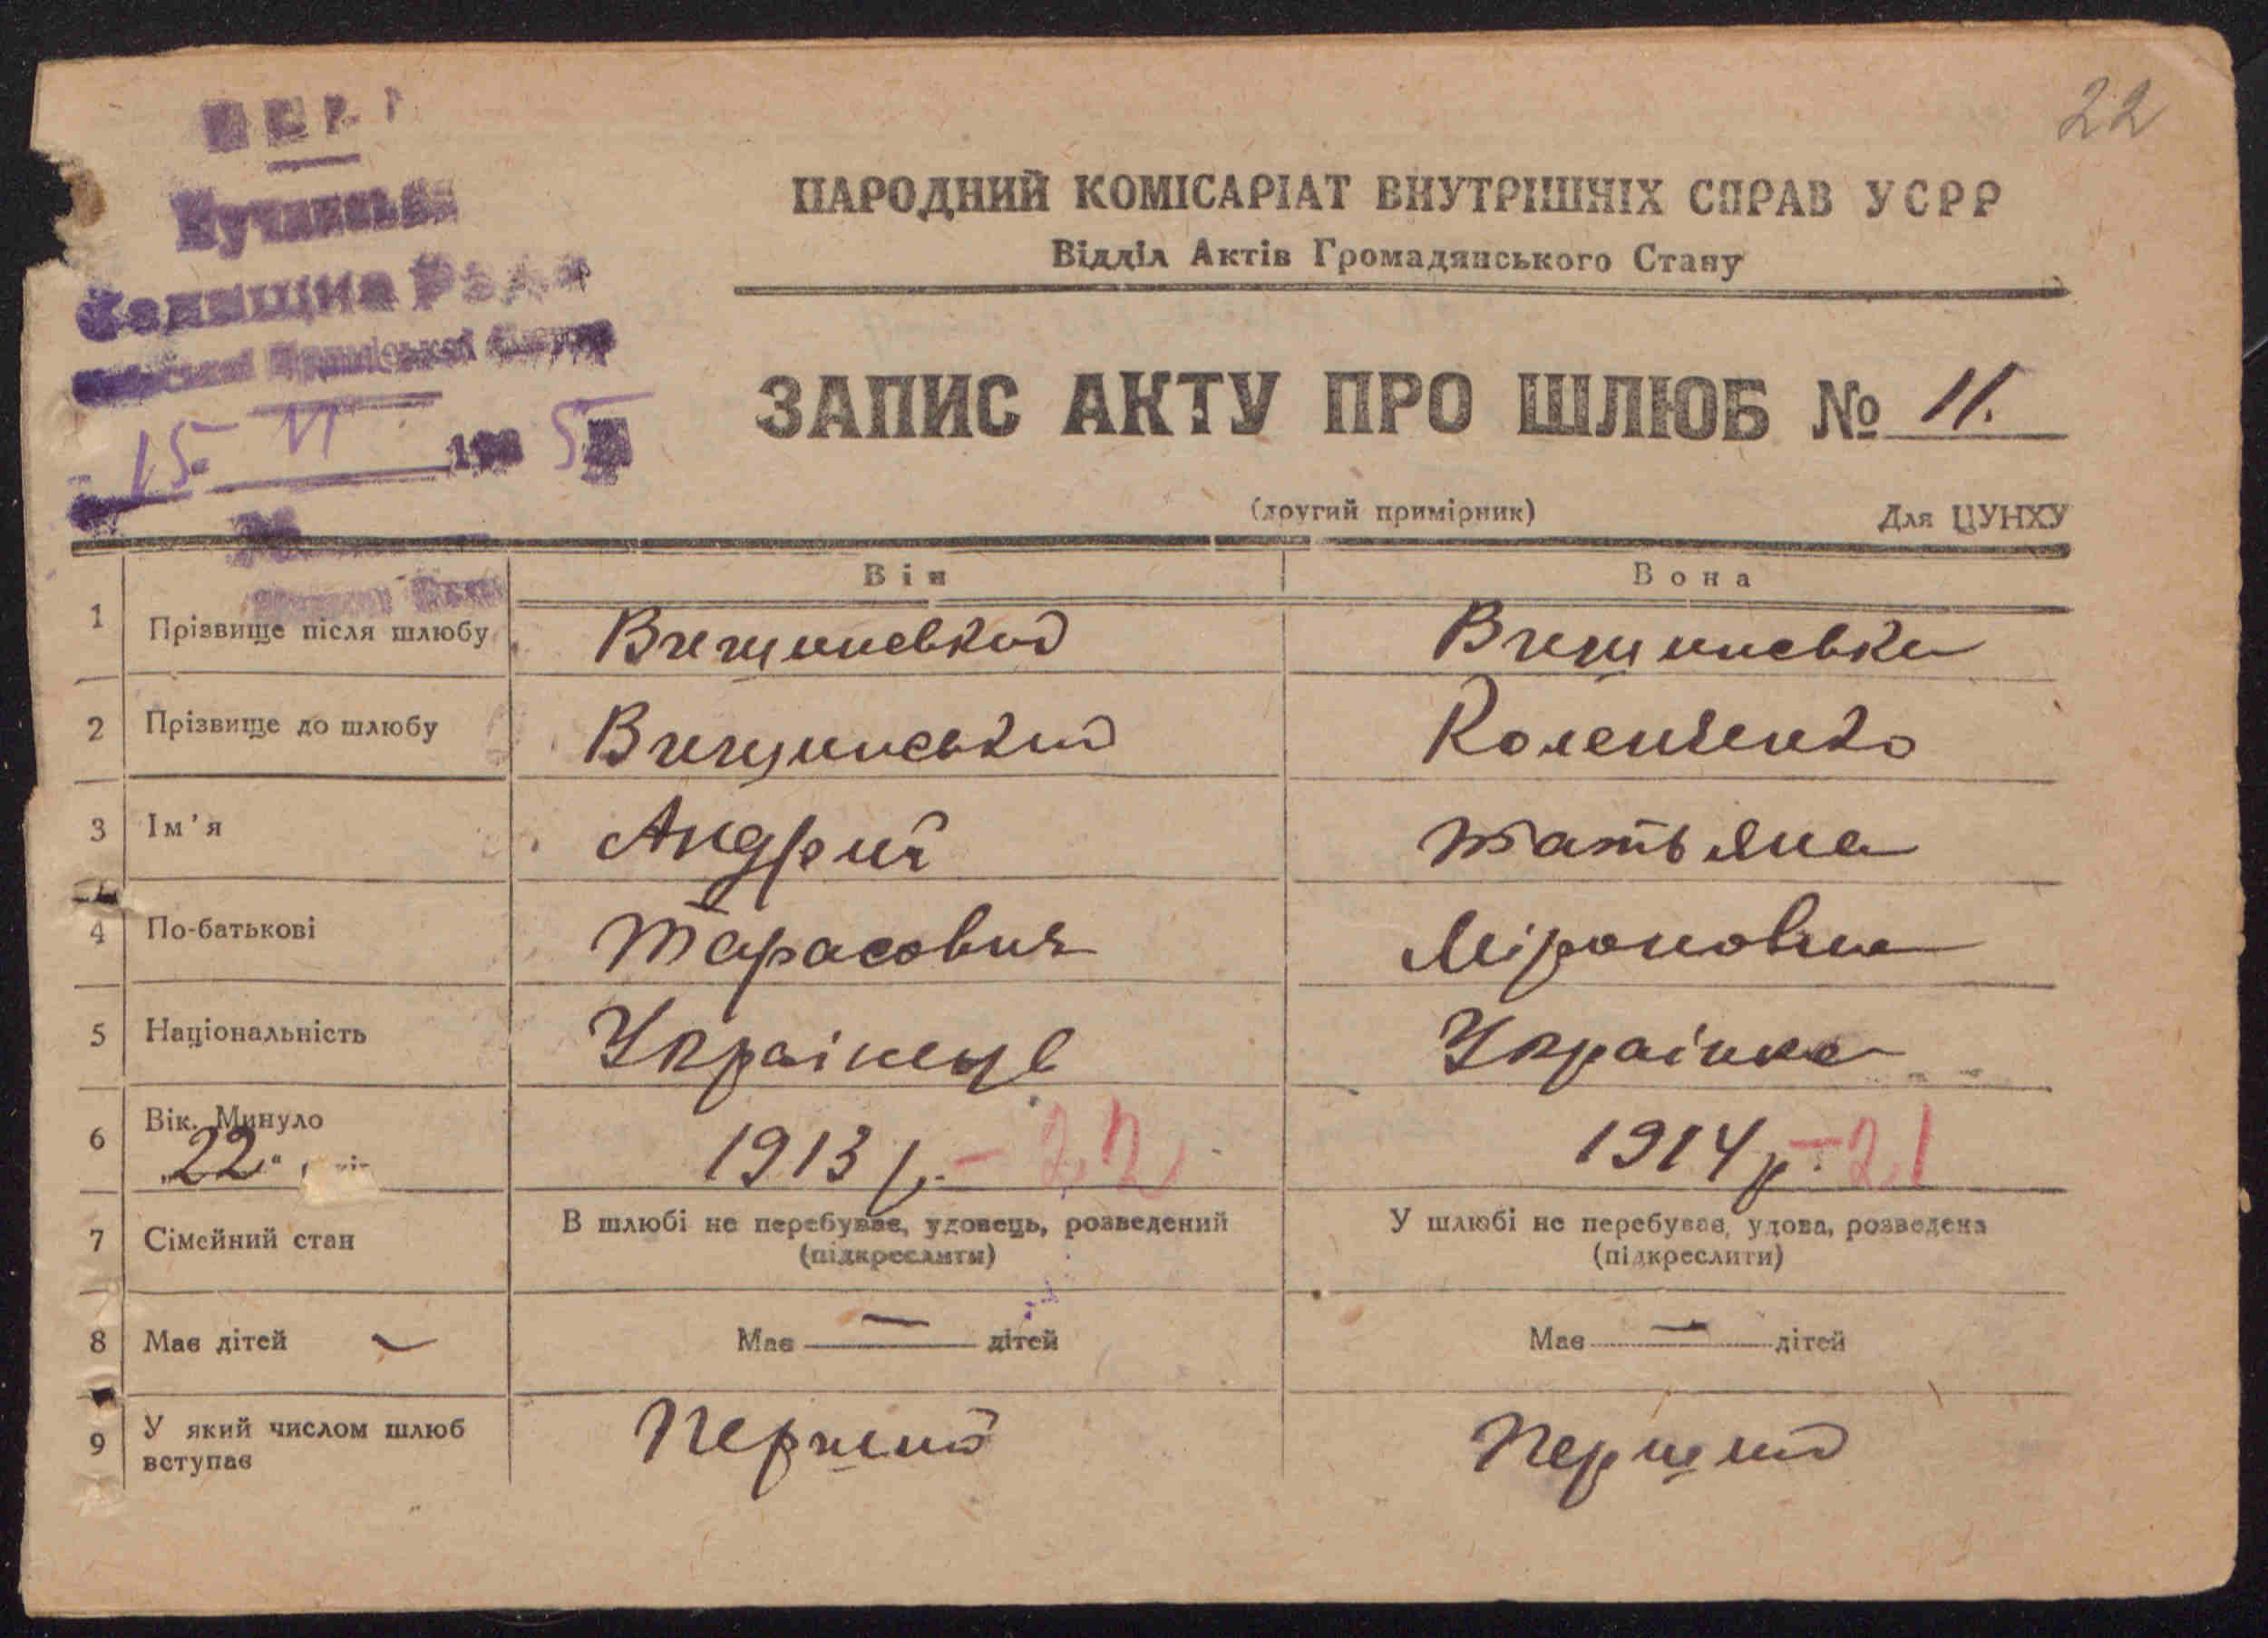 22
НАРОДНИЙ КОМІСАРІАТ ВНУТРІШНІХ СПРАВ УСРР
Відділ Актів Громадянського Стану
ЗАПИС АКТУ ПРО ШЛЮБ № 11.
15. VI 193 5
(другий примірник) Для ЦУНХУ
Він Вона
1 Прізвище після шлюбу
2 Прізвище до шлюбу
3 Ім'я Андрий Татьяна
4 По-батькові Тарасович Міроновна
5 Національність Українець Українка
6 Вік. Минуло „22“ 1913 р. – 22 1914 р. – 21
7 Сімейний стан В шлюбі не перебуває, удовець, розведений У шлюбі не перебуває, удова, розведена
(підкреслити) (підкреслити)
8 Має дітей — Має — дітей Має — дітей
9 У який числом шлюб Перший Перший
вступає